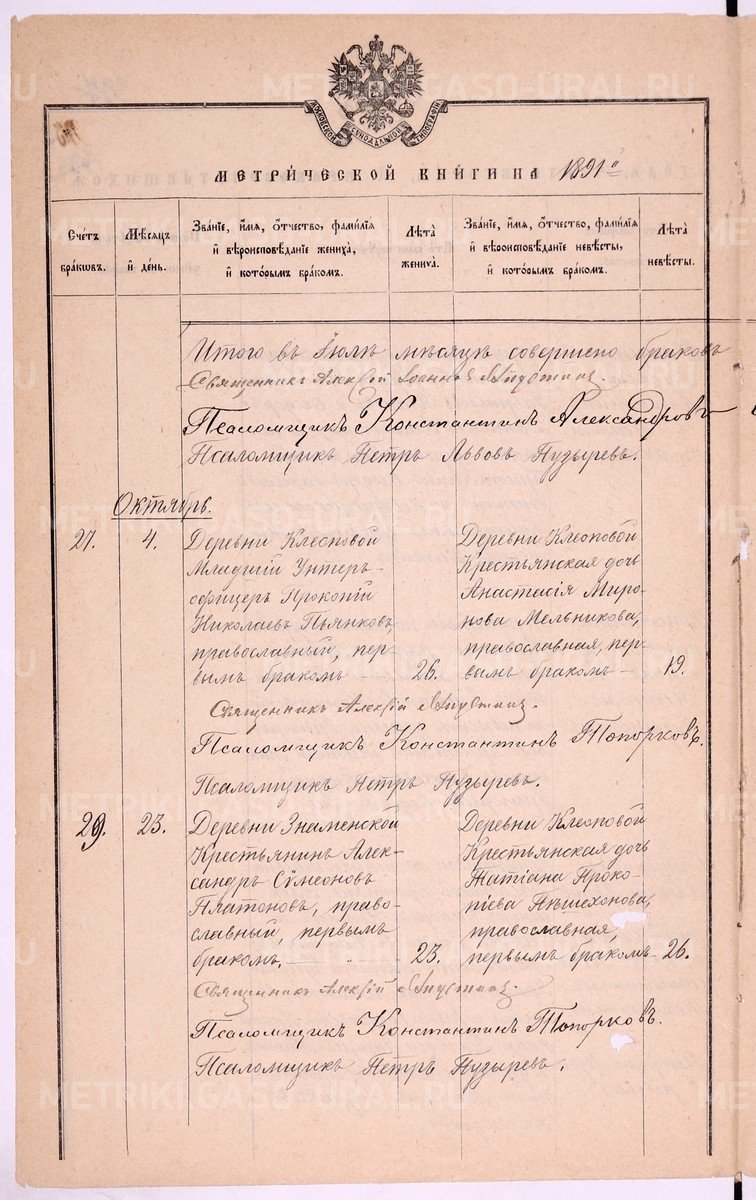 METRIKI.GASO-URAL.RU
МОСКОВСКОЙ СѴНОДАЛЬНОЙ ТИПОГРАФІИ
МЕТРИ́ЧЕСКОЙ КНИ́ГИ НА 1891 г.
Сче́тъ бра́кѡвъ.
Мѣ́сѧцъ и҆ де́нь.
Зва́нїе, и҆́мѧ, ѻ҆́тчество, фами́лїѧ и҆ вѣроисповѣ́данїе жениха̀, и҆ кото́рымъ бра́комъ.
Лѣта̀ жениха̀.
Зва́нїе, и҆́мѧ, ѻ҆́тчество, фами́лїѧ и҆ вѣроисповѣ́данїе невѣ́сты, и҆ кото́рымъ бра́комъ.
Лѣта̀ невѣ́сты.
Итого въ Іюлѣ мѣсяцѣ совершено браковъ
Священникъ Алексій
Псаломщикъ Константинъ Александровъ
Псаломщикъ Петръ Львовъ Пузыревъ.
Октябрь.
27.
4.
Деревни Клеоповой
Младшій Унтеръ-
офицеръ Прокопій
Николаевъ Пьянковъ,
православный, пер-
вымъ бракомъ
26.
Деревни Клеоповой
Крестьянская дочь
Анастасія Миро-
нова Мельникова,
православная, пер-
вымъ бракомъ —
19.
Священникъ Алексій
Псаломщикъ Константинъ Топорковъ.
Псаломщикъ Петръ Пузыревъ.
29.
23.
Деревни Знаменской
Крестьянинъ Алек-
сандръ Сѵмеоновъ
Платоновъ, право-
славный, первымъ
бракомъ, —
23.
Деревни Клеоповой
Крестьянская дочь
Татіана Проко-
піева Пѣшехонова,
православная,
первымъ бракомъ —
26.
Священникъ Алексій
Псаломщикъ Константинъ Топорковъ.
Псаломщикъ Петръ Пузыревъ.